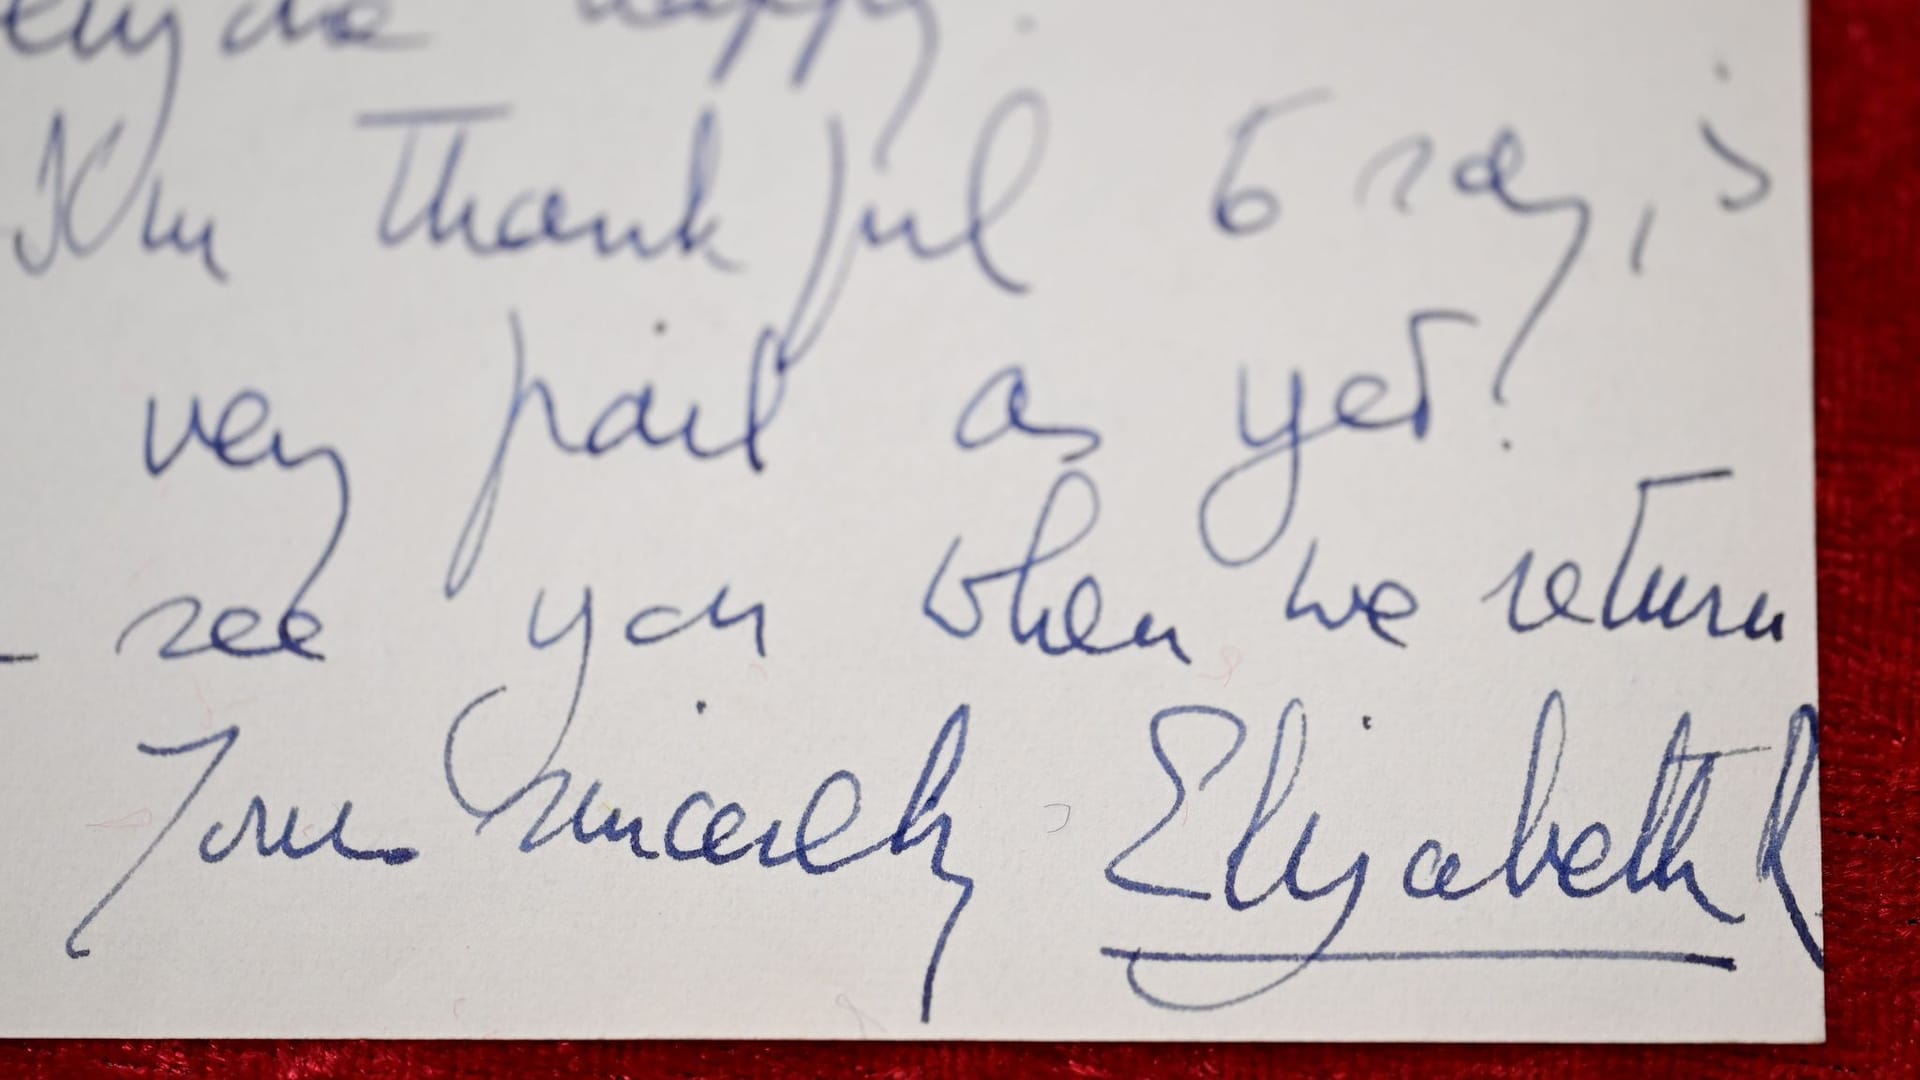 happy.
I'm thankful to say, is
very pail as yet!
see you when we return
Yours sincerely Elizabeth R